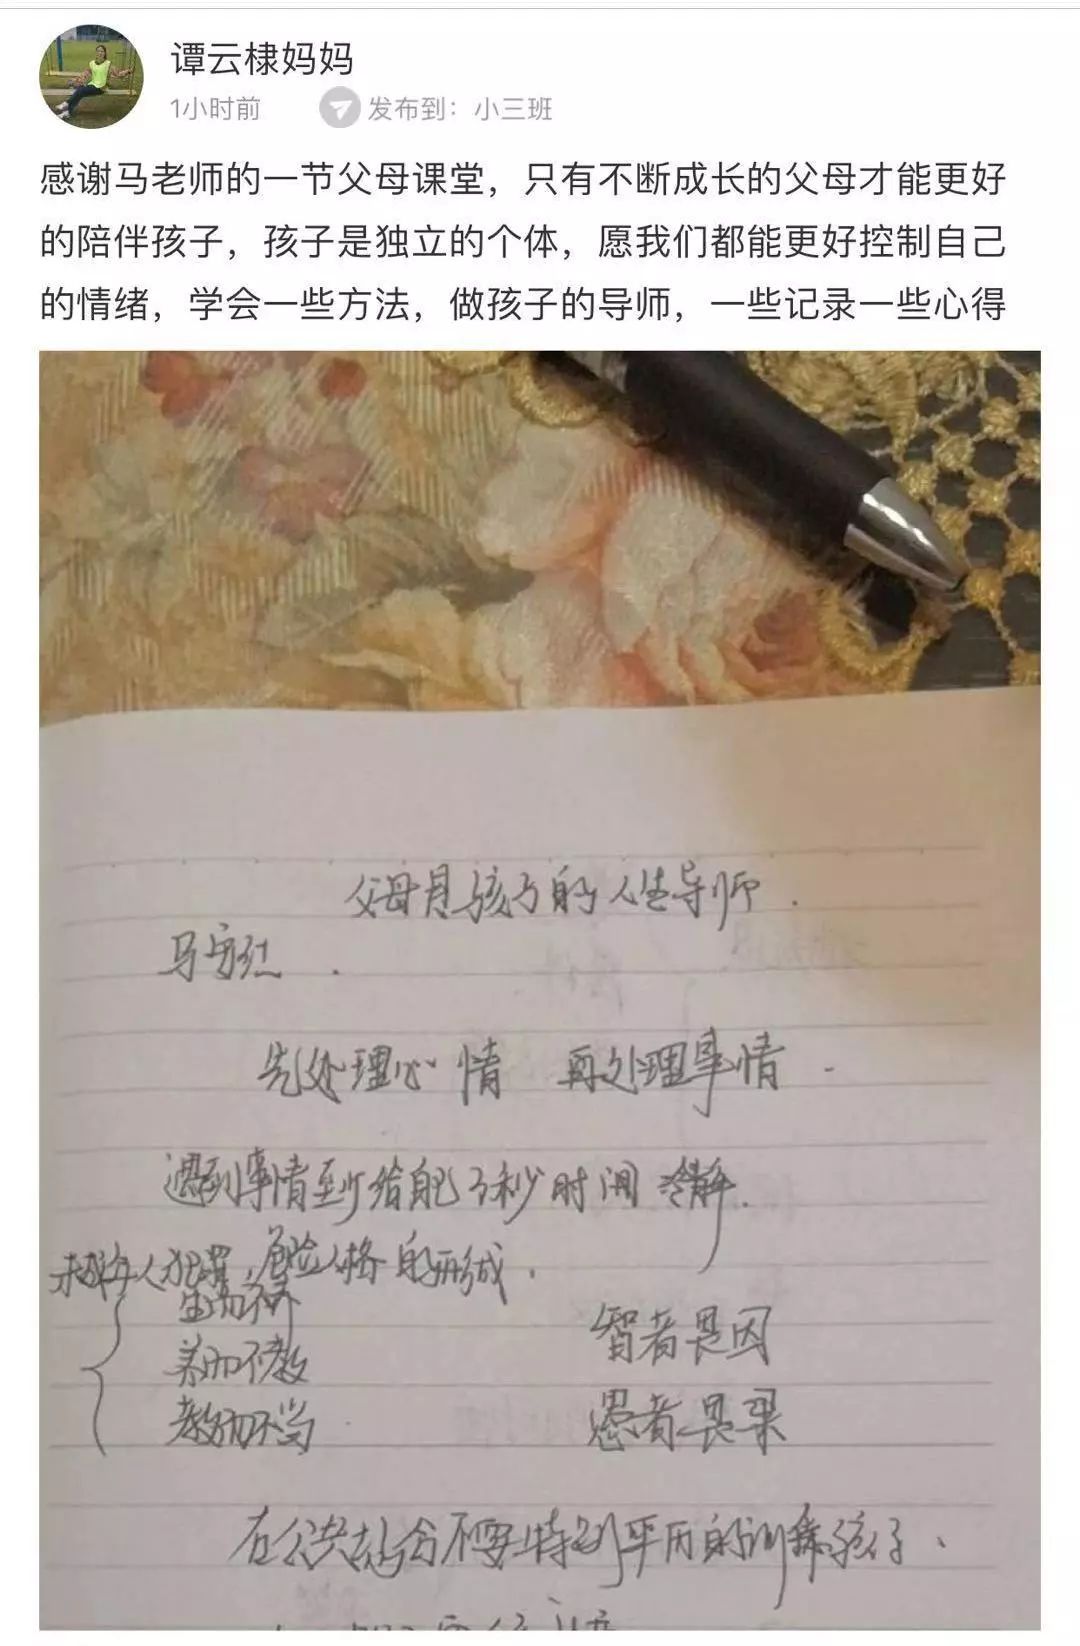 谭云棣妈妈
1小时前 发布到：小三班
感谢马老师的一节父母课堂，只有不断成长的父母才能更好
的陪伴孩子，孩子是独立的个体，愿我们都能更好控制自己
的情绪，学会一些方法，做孩子的导师，一些记录一些心得
父母是孩子的人生导师.
马
先处理心情 再处理事情.
遇到事情至少给自己3秒时间 冷静.
未成年人犯罪，危险人格的形成.
生而不养
养而不教
教而不当.
智者畏因
愚者畏果
在公共场合不要特别严厉的训斥孩子.